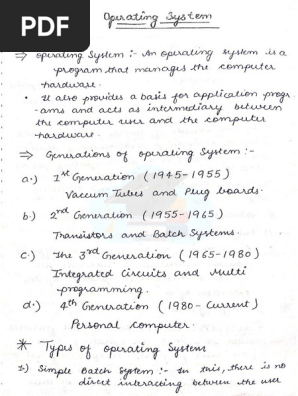 PDF
Operating System
⇒ operating System :- An operating system is a
program that manages the computer
hardware.
• It also provides a basis for application progr
-ams and acts as intermediary between
the computer user and the computer
hardware.
⇒ Generations of operating System :-
a.) 1st Generation (1945-1955)
Vaccum Tubes and Plug boards.
b.) 2nd Generation (1955-1965)
Transistors and Batch Systems.
c.) The 3rd Generation (1965-1980)
Integrated Circuits and Multi
programming.
d.) 4th Generation (1980- Current)
Personal computer.
* Types of operating System
1.) Simple Batch System :- In this, there is no
direct interacting between the user